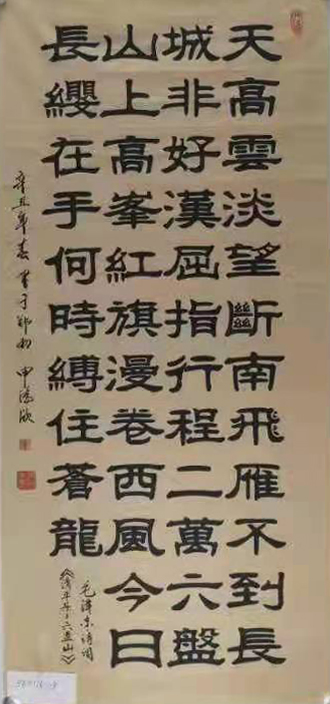 天高雲淡望斷南飛雁不到長
城非好漢屈指行程二萬六盤
山上高峯紅旗漫卷西風今日
長纓在手何時縛住蒼龍
毛澤東詩詞
《清平樂·六盤山》
辛丑年春書于